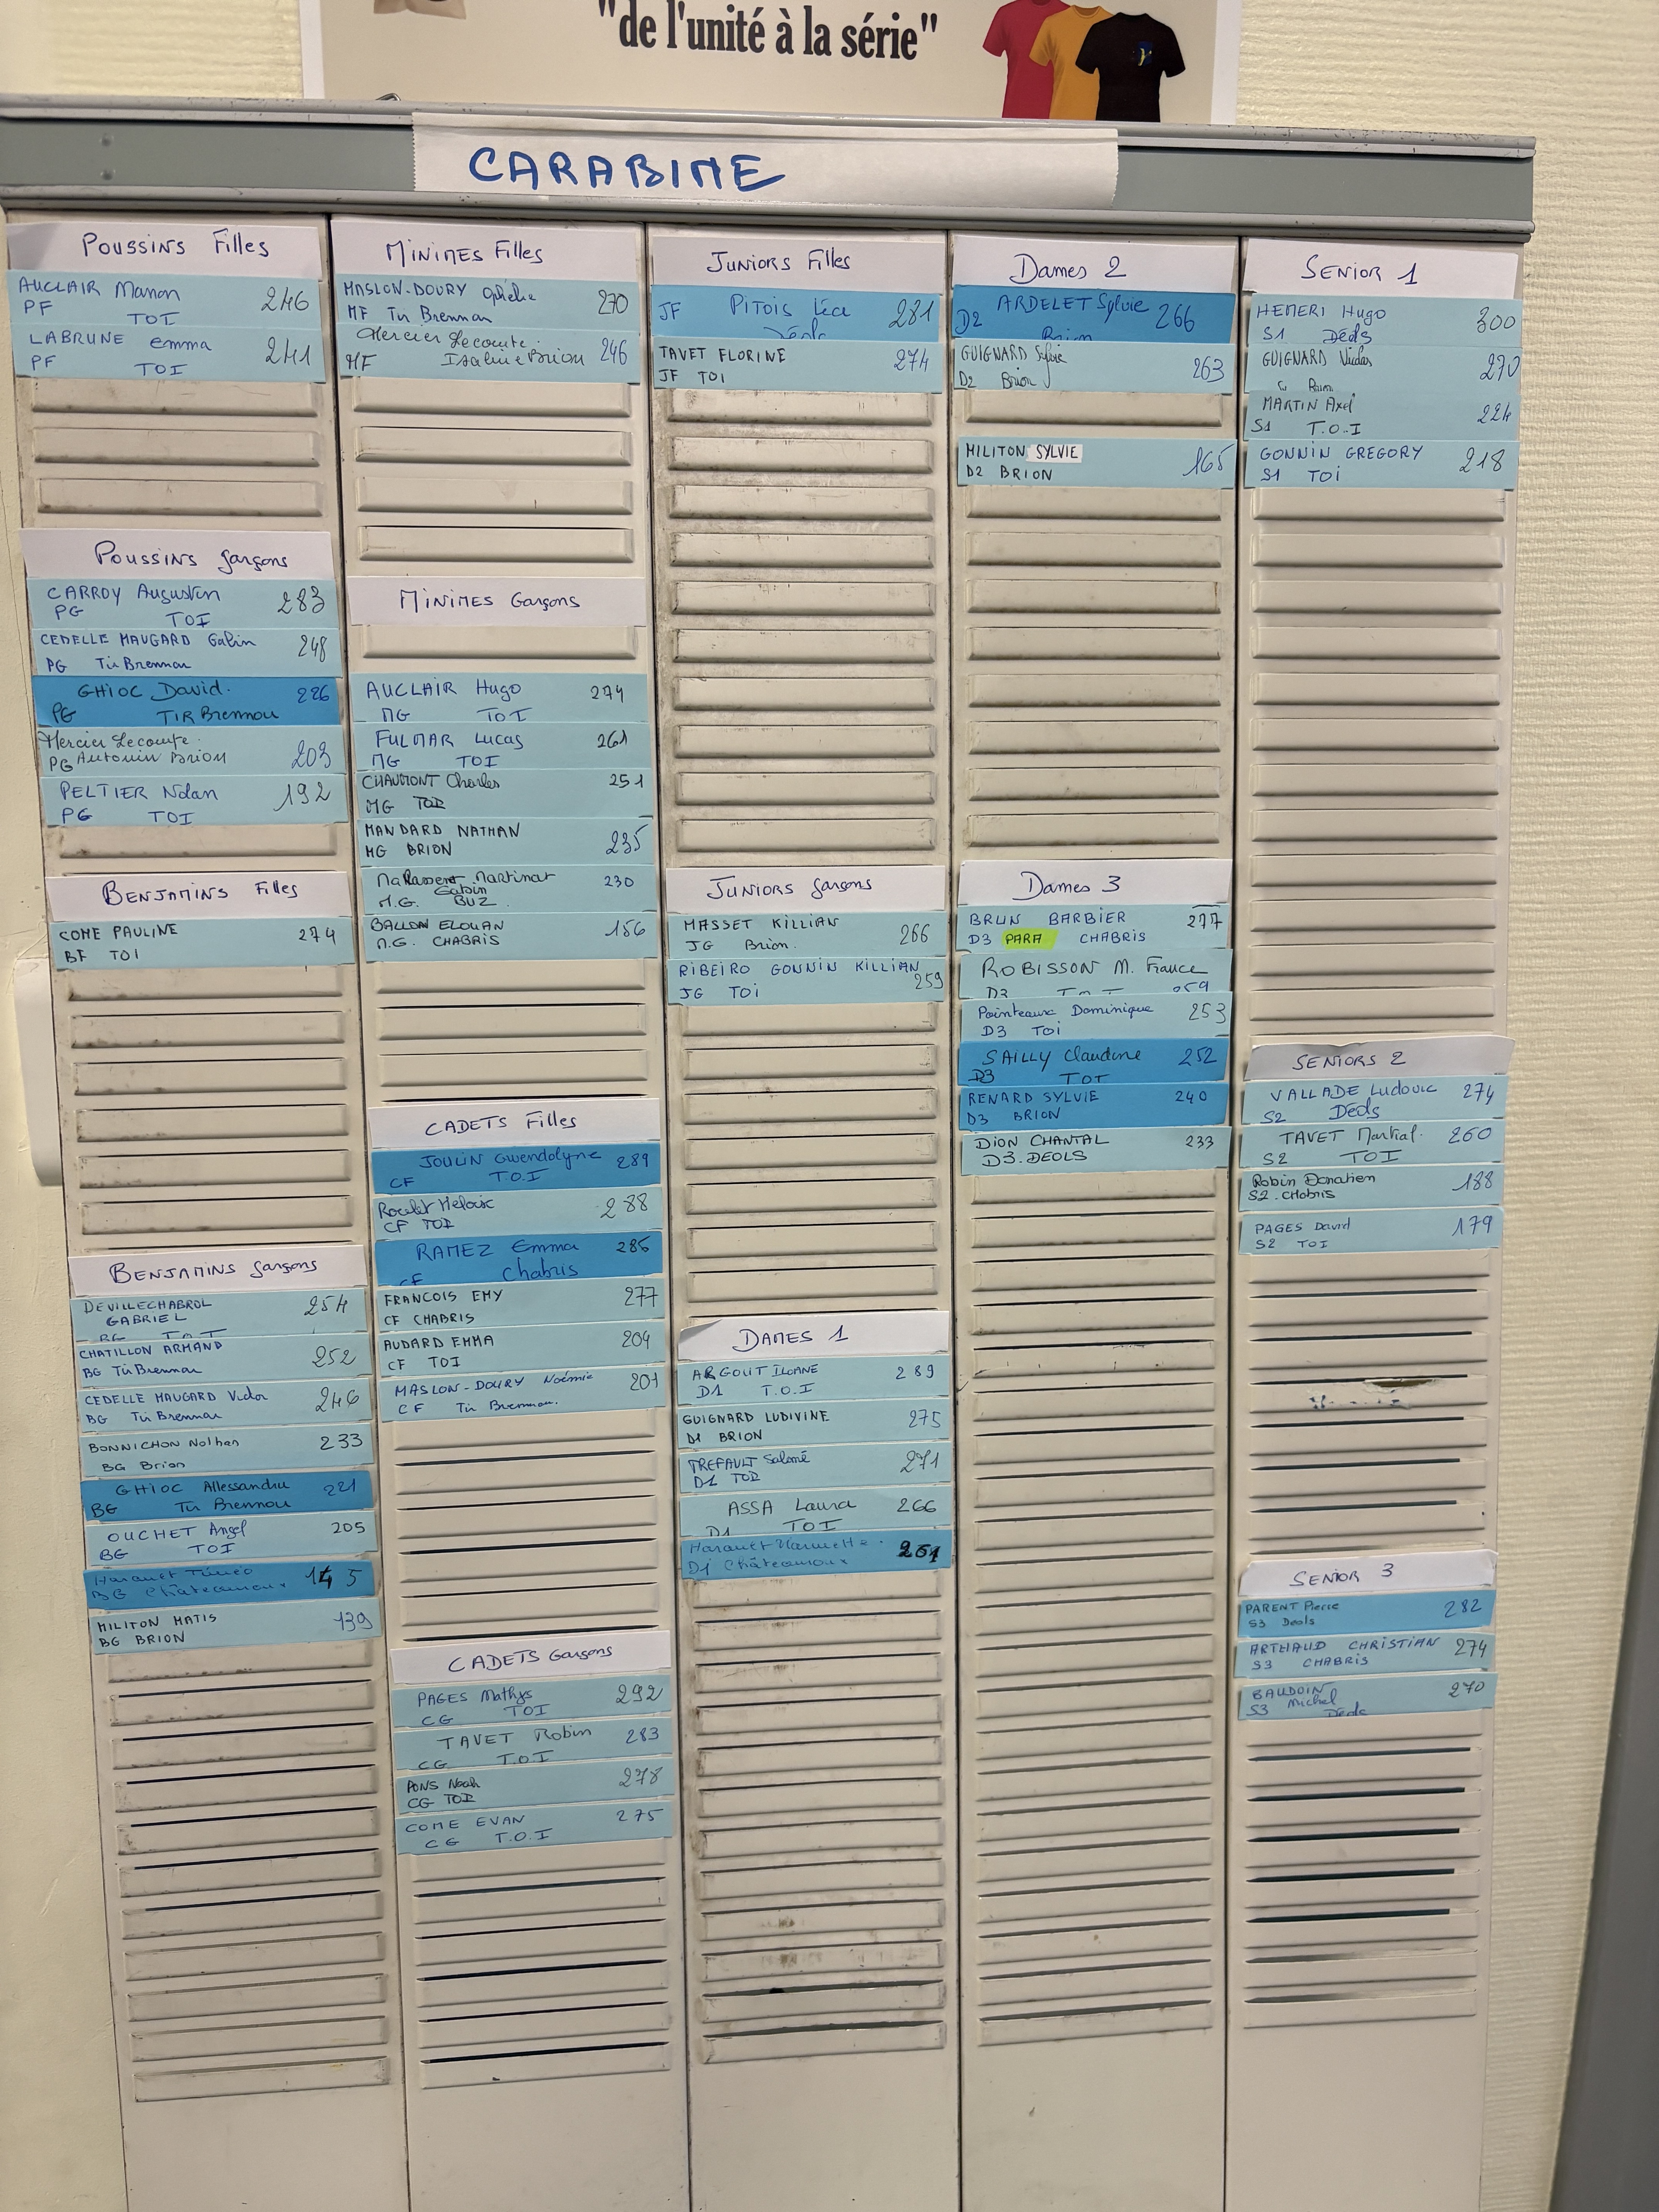 "de l'unité à la série"
CARABINE
POUSSINS Filles
AUCLAIR Manon 246
PF TOI
LABRUNE emma 241
PF TOI
POUSSINS garçons
CARROY Augustin 283
PG TOI
CEDELLE MAUGARD Gabin 248
PG Tir Brennou
GHIOC David. 226
PG TIR Brennou
Mercier Lecomte.
PG Antonin Brion 203
PELTIER Nolan 192
PG TOI
BENJAMINS Filles
COME PAULINE 274
BF TOI
BENJAMINS garçons
DEVILLECHABROL 254
GABRIEL
BG TOI
CHATILLON ARMAND 252
BG Tir Brennou
CEDELLE MAUGARD Victor 246
BG Tir Brennou
BONNICHON Nolhan 233
BG Brion
GHIOC Allessandru 221
BG Tir Brennou
OUCHET Angel 205
BG TOI
145
BG Châteauroux
MILITON MATIS 139
BG BRION
MINIMES Filles
MASLON-DOURY Ophélie 270
MF Tir Brennou
Mercier Lecomte.
MF Isaline Brion 246
MINIMES Garçons
AUCLAIR Hugo 274
MG TOI
FULMAR Lucas 261
MG TOI
CHAUMONT Charles 251
MG TOI
MANDARD NATHAN 235
MG BRION
Martinat 230
Gabin
M.G. BUZ.
BALLON ELOUAN 156
M.G. CHABRIS
CADETS Filles
JOULIN Gwendolyne 289
CF T.O.I
Roulet Héloïse 288
CF TOI
RAMEZ Emma 286
CF Chabris
FRANCOIS EMY 277
CF CHABRIS
AUDARD EMMA 204
CF TOI
MASLON-DOURY Noémie 201
CF Tir Brennou.
CADETS Garçons
PAGES Mathys 292
CG TOI
TAVET Robin 283
CG T.O.I
PONS Noah 278
CG TOI
COME EVAN 275
CG T.O.I
JUNIORS Filles
JF PITOIS Léa 281
Déols
TAVET FLORINE 274
JF TOI
JUNIORS garçons
MASSET KILLIAN 266
JG Brion.
RIBEIRO GONNIN KILLIAN
JG TOI 259
DAMES 1
ARGOUT ILOANE 289
D1 T.O.I
GUIGNARD LUDIVINE 275
D1 BRION
TREFAULT Salomé 271
D1 TOI
ASSA Laura 266
D1 TOI
251
D1 Châteauroux
Dames 2
ARDELET Sylvie 266
D2 Brion
GUIGNARD Sylvie 263
D2 Brion
MILITON SYLVIE 165
D2 BRION
Dames 3
BRUN BARBIER 277
D3 PARA CHABRIS
ROBISSON M. France
D3 TOI 259
Painteaux Dominique 253
D3 TOI
SAILLY Claudine 252
D3 TOI
RENARD SYLVIE 240
D3 BRION
DION CHANTAL 233
D3.DEOLS
SENIOR 1
HEMERI Hugo 300
S1 Déols
GUIGNARD Nicolas 270
Brion
MARTIN Axel 224
S1 T.O.I
GONNIN GREGORY 218
S1 TOI
SENIORS 2
VALLADE Ludovic 274
S2 Déols
TAVET Martial. 260
S2 TOI
Robin Donatien 188
S2.Chabris
PAGES David 179
S2 TOI
SENIOR 3
PARENT Pierre 282
S3 Deols
ARTHAUD CHRISTIAN 274
S3 CHABRIS
BAUDOIN 270
S3 Michel
Déols